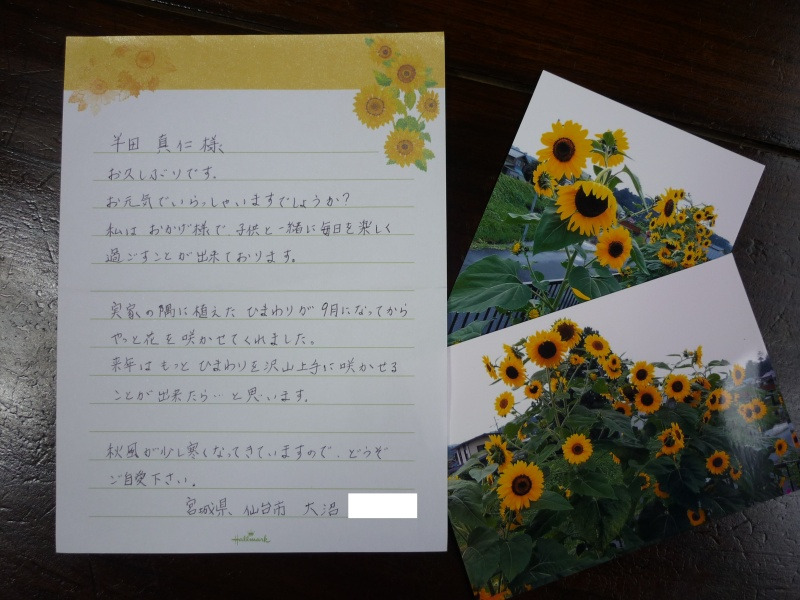 半田 真仁 様、
お久しぶりです。
お元気でいらっしゃいますでしょうか?
私は おかげ様で、子供と一緒に毎日を楽しく
過ごすことが出来ております。
実家の隅に植えた ひまわりが 9月になってから
やっと花を咲かせてくれました。
来年は もっと ひまわりを沢山上手に咲かせる
ことが出来たら… と思います。
秋風が少し寒くなってきていますので、どうぞ
ご自愛下さい。
宮城県 仙台市 大沼
Hallmark